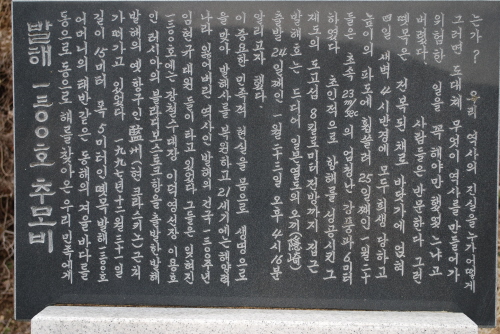 발해 一三○○호 추모비
동으로 동으로 해를 찾아온 우리 민족에게
어머니의 태반같은 동해의 겨울 바다를
길이 15미터 폭 5미터인 뗏목 발해 一三○○호
가 떠가고 있었다. 一九九七年十二月三十一日
발해의 옛 항구인 鹽州(현 크라스키노) 근처
인 러시아의 블라디보스토크항을 출발한 발해
一三○○호에는 장철수대장 이덕영선장 이용호
임현규 대원 들이 타고 있었다 그들은 잊혀진
나라 잃어버린 역사인 발해의 건국 一三○○주년
을 맞아 발해사를 복원하고 21세기에는 해양력
이 중요한 민족적 현실을 몸으로 생명으로
알리고자 했다.
출발 24일째인 一월二十三일 오후 4시 16분
발해호는 드디어 일본 도의 오끼
제도의 도고섬 8킬로미터 전방까지 접근
하였다 초인적으로 항해를 성공시킨 그
들은 초속 23m/sec의 엄청난 강풍과 6미터
높이의 파도에 휩쓸려 25일째인 一월二十四
일 새벽 4시반경에 모두 희생 당하고
뗏목은 전복된 채로 바닷가에 엎혀
버렸다. 사람들은 반문한다 그런
위험한 일을 꼭 해야만 했었느냐고
그러면 도대체 무엇이 역사를 만들어가
는가? 우리 역사의 진실을 누가 어떻게